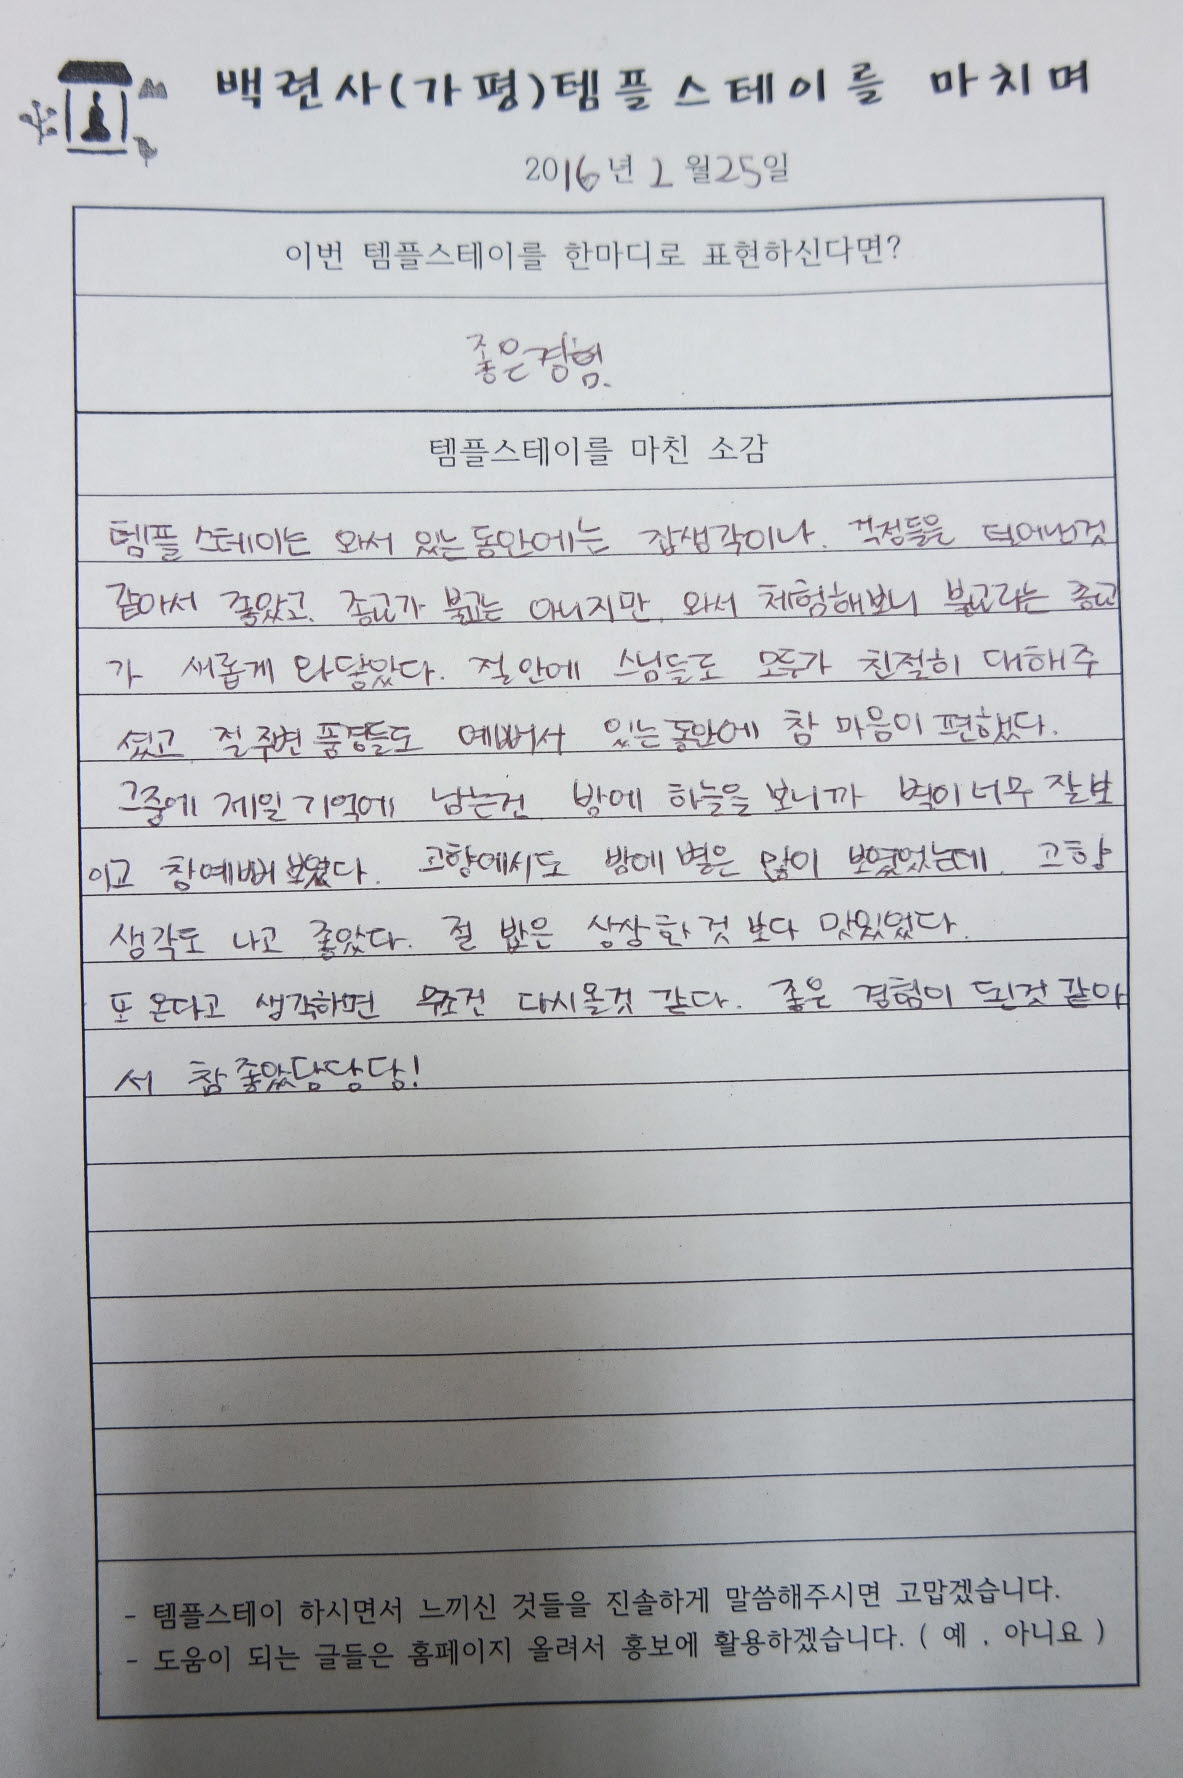 백련사(가평)템플스테이를 마치며
2016년 2월25일
이번 템플스테이를 한마디로 표현하신다면?
좋은경험.
템플스테이를 마친 소감
템플스테이는 와서 있는동안에는 잡생각이나, 걱정들을 덜어낸것
같아서 좋았고. 종교가 불교는 아니지만, 와서 체험해보니 불교라는 종교
가 새롭게 와닿았다. 절안에 스님들도 모두가 친절히 대해주
셨고, 절주변 풍경들도 예뻐서 있는동안에 참 마음이 편했다.
그중에 제일 기억에 남는건 밤에 하늘을 보니까 별이너무 잘보
이고 참예뻐 보였다. 고향에서도 밤에 별은 많이 보였었는데, 고향
생각도 나고 좋았다. 절 밥은 상상한 것 보다 맛있었다.
또 온다고 생각하면 무조건 다시올것 같다. 좋은 경험이 된것 같아
서 참 좋았담당당!
- 템플스테이 하시면서 느끼신 것들을 진솔하게 말씀해주시면 고맙겠습니다.
- 도움이 되는 글들은 홈페이지 올려서 홍보에 활용하겠습니다. ( 예 , 아니요 )